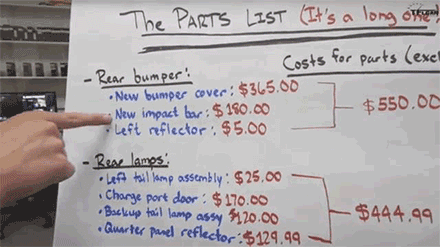 The PARTS LIST (It's a long one
Costs for parts (excl
- Rear bumper:
• New bumper cover: $365.00
• New impact bar: $180.00
• Left reflector: $5.00
$550.00
- Rear lamps:
• Left tail lamp assembly: $25.00
• Charge port door: $170.00
• Backup tail lamp assy $120.00
• Quarter panel reflector: $129.99
$444.99